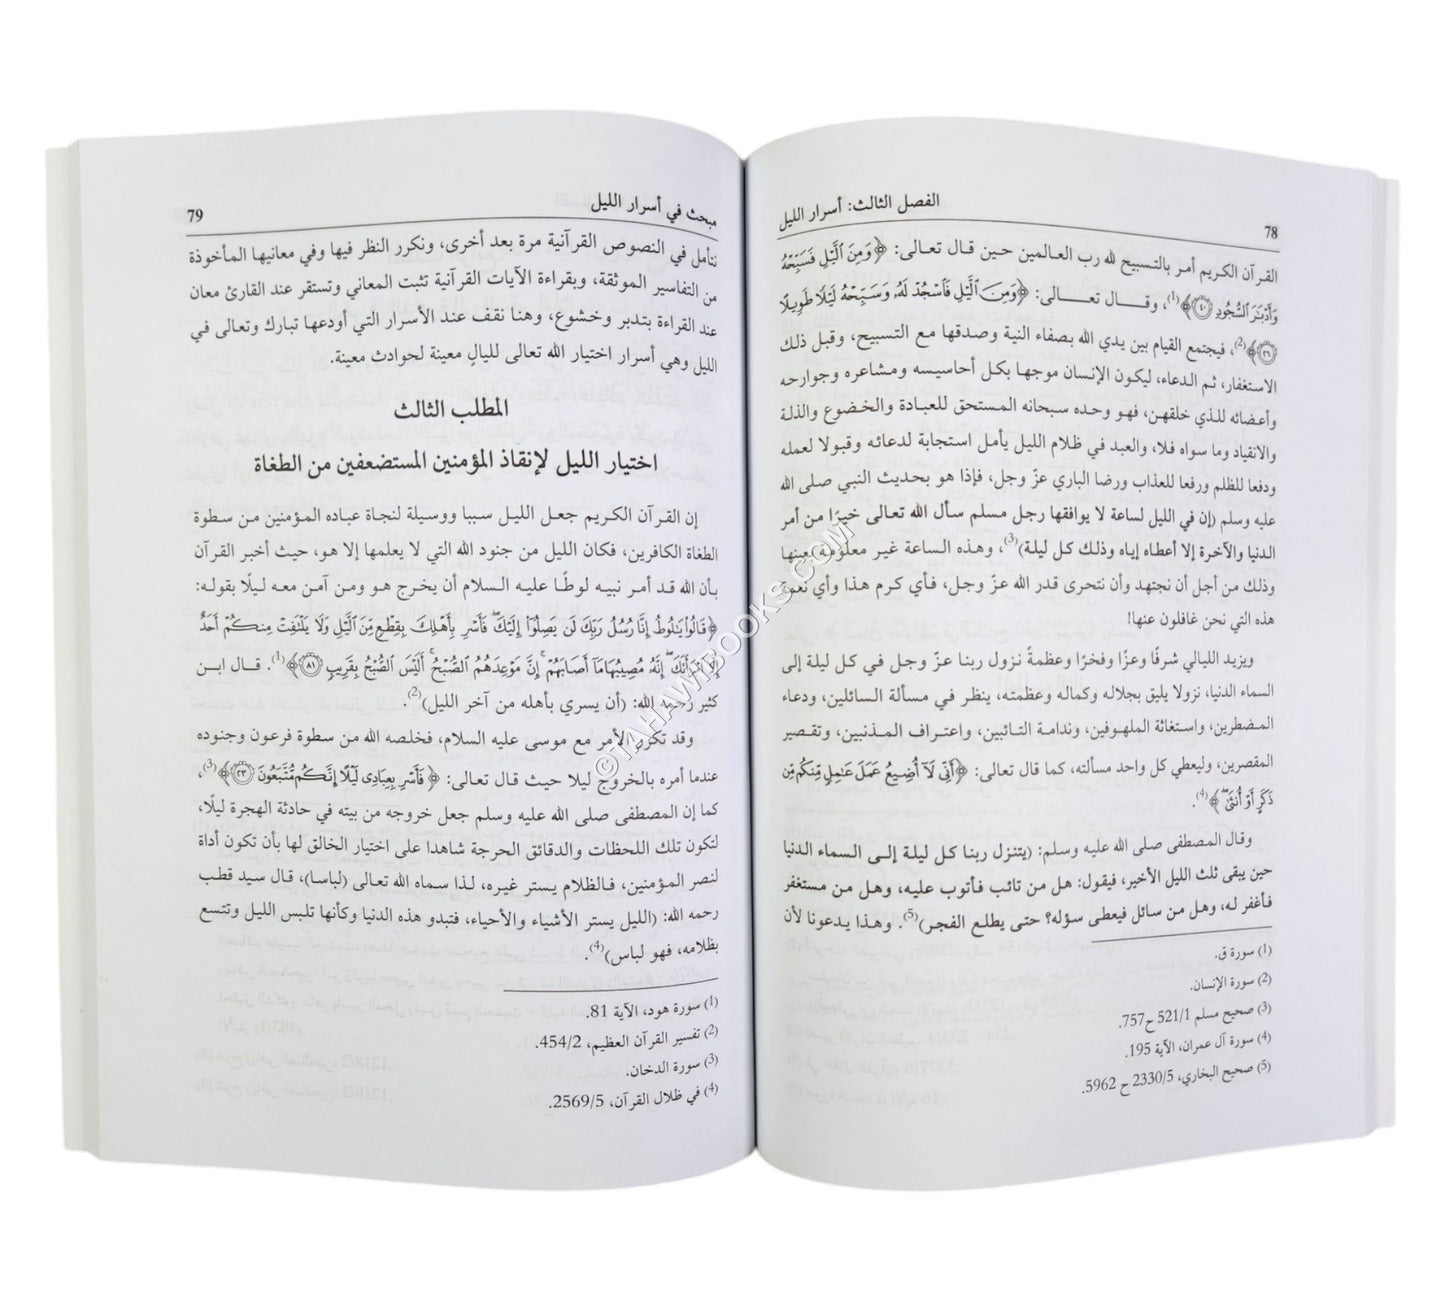 الفصل الثالث: أسرار الليل
78
القرآن الكريم أمر بالتسبيح لله رب العالمين حين قال تعالى: ﴿وَمِنَ ٱلَّيْلِ فَسَبِّحْهُ
وَأَدْبَٰرَ ٱلسُّجُودِ ٤٠﴾(1)، وقال تعالى: ﴿وَمِنَ ٱلَّيْلِ فَٱسْجُدْ لَهُۥ وَسَبِّحْهُ لَيْلًا طَوِيلًا
٢٦﴾(2)، فيجتمع القيام بين يدي الله بصفاء النية وصدقها مع التسبيح، وقبل ذلك
الاستغفار، ثم الدعاء، ليكون الإنسان موجها بكل أحاسيسه ومشاعره وجوارحه
وأعضائه للذي خلقهن، فهو وحده سبحانه المستحق للعبادة والخضوع والذلة
والانقياد وما سواه فلا، والعبد في ظلام الليل يأمل استجابة لدعائه وقبولا لعمله
ودفعا للظلم ورفعا للعذاب ورضا الباري عزّ وجل، فإذا هو بحديث النبي صلى الله
عليه وسلم (إن في الليل لساعة لا يوافقها رجل مسلم سأل الله تعالى خيرًا من أمر
الدنيا والآخرة إلا أعطاه إياه وذلك كل ليلة)(3)، وهذه الساعة غير معلومة بعينها
وذلك من أجل أن نجتهد وأن نتحرى قدر الله عزّ وجل، فأي كرم هذا وأي نعمة
هذه التي نحن غافلون عنها!
ويزيد الليالي شرفًا وعزًا وفخرًا وعظمةً نزول ربنا عزّ وجل في كل ليلة إلى
السماء الدنيا، نزولا يليق بجلاله وكماله وعظمته، ينظر في مسألة السائلين، ودعاء
المضطرين، واستغاثة الملهوفين، وندامة التائبين، واعتراف المذنبين، وتقصير
المقصرين، وليعطي كل واحد مسألته، كما قال تعالى: ﴿أَنِّى لَآ أُضِيعُ عَمَلَ عَٰمِلٍ مِّنكُم مِّن
ذَكَرٍ أَوْ أُنثَىٰ ۖ﴾(4).
وقال المصطفى صلى الله عليه وسلم: (يتنزل ربنا كل ليلة إلى السماء الدنيا
حين يبقى ثلث الليل الأخير، فيقول: هل من تائب فأتوب عليه، وهل من مستغفر
فأغفر له، وهل من سائل فيعطى سؤله؟ حتى يطلع الفجر)(5). وهذا يدعونا لأن
(1) سورة ق.
(2) سورة الإنسان.
(3) صحيح مسلم 521/1 ح757.
(4) سورة آل عمران، الآية 195.
(5) صحيح البخاري، 2330/5 ح 5962.
مبحث في أسرار الليل
79
نتأمل في النصوص القرآنية مرة بعد أخرى، ونكرر النظر فيها وفي معانيها المأخوذة
من التفاسير الموثقة، وبقراءة الآيات القرآنية تثبت المعاني وتستقر عند القارئ معان
عند القراءة بتدبر وخشوع، وهنا نقف عند الأسرار التي أودعها تبارك وتعالى في
الليل وهي أسرار اختيار الله تعالى لليالٍ معينة لحوادث معينة.
المطلب الثالث
اختيار الليل لإنقاذ المؤمنين المستضعفين من الطغاة
إن القرآن الكريم جعل الليل سببا ووسيلة لنجاة عباده المؤمنين من سطوة
الطغاة الكافرين، فكان الليل من جنود الله التي لا يعلمها إلا هو، حيث أخبر القرآن
بأن الله قد أمر نبيه لوطًا عليه السلام أن يخرج هو ومن آمن معه ليلًا بقوله:
﴿قَالُوا۟ يَٰلُوطُ إِنَّا رُسُلُ رَبِّكَ لَن يَصِلُوٓا۟ إِلَيْكَ ۖ فَأَسْرِ بِأَهْلِكَ بِقِطْعٍ مِّنَ ٱلَّيْلِ وَلَا يَلْتَفِتْ مِنكُمْ أَحَدٌ
إِلَّا ٱمْرَأَتَكَ ۖ إِنَّهُۥ مُصِيبُهَا مَآ أَصَابَهُمْ ۚ إِنَّ مَوْعِدَهُمُ ٱلصُّبْحُ ۚ أَلَيْسَ ٱلصُّبْحُ بِقَرِيبٍ ٨١﴾(1). قال ابن
كثير رحمه الله: (أن يسري بأهله من آخر الليل)(2).
وقد تكرر الأمر مع موسى عليه السلام، فخلصه الله من سطوة فرعون وجنوده
عندما أمره بالخروج ليلا حيث قال تعالى: ﴿فَأَسْرِ بِعِبَادِى لَيْلًا إِنَّكُم مُّتَّبَعُونَ ٢٣﴾(3)،
كما إن المصطفى صلى الله عليه وسلم جعل خروجه من بيته في حادثة الهجرة ليلًا،
لتكون تلك اللحظات والدقائق الحرجة شاهدا على اختيار الخالق لها بأن تكون أداة
لنصر المؤمنين، فالظلام يستر غيره، لذا سماه الله تعالى (لباسا)، قال سيد قطب
رحمه الله: (الليل يستر الأشياء والأحياء، فتبدو هذه الدنيا وكأنها تلبس الليل وتتسع
بظلامه، فهو لباس)(4).
(1) سورة هود، الآية 81.
(2) تفسير القرآن العظيم، 454/2.
(3) سورة الدخان.
(4) في ظلال القرآن، 2569/5.
©TAHAWIBOOKS.COM